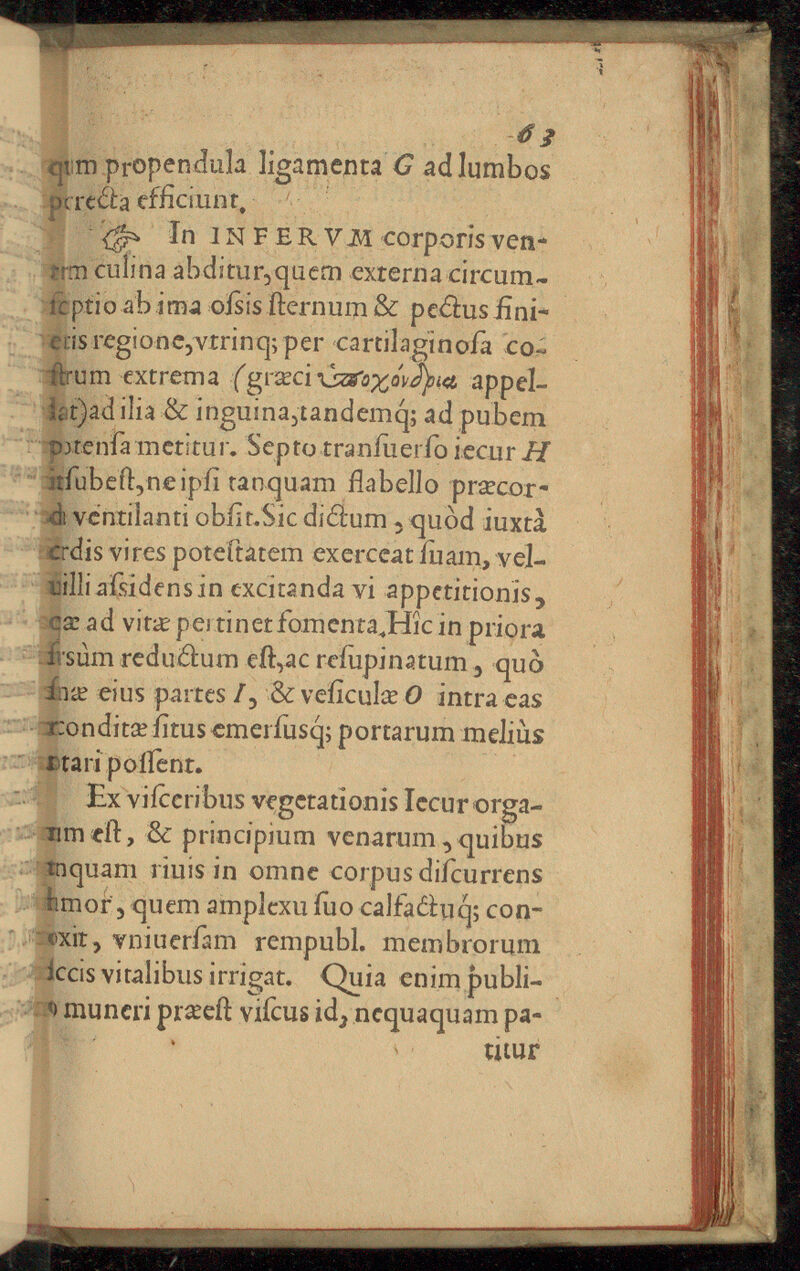 63
propendula ligamenta G ad lumbos
efficiunt,
In INFERVM corporis ven-
culina abditur, quem externa circum-
ab ima ofsis ſternum & pectus fini-
regione, vtrinq; per cartilaginoſa co-
extrema (græci ὑποχόνδρια appel-
ad ilia & inguina, tandemq; ad pubem
metitur. Septo tranſuerſo iecur H
ne ipſi tanquam flabello præcor-
ventilanti obſit. Sic dictum, quòd iuxtà
vires poteſtatem exerceat ſuam, vel-
aſsidens in excitanda vi appetitionis,
ad vitæ pertinet fomenta. Hic in priora
reductum eſt, ac reſupinatum, quò
eius partes I, & veſiculæ O intra eas
ſitus emerſusq; portarum meliùs
poſſent.
Ex viſceribus vegetationis Iecur orga-
eſt, & principium venarum, quibus
riuis in omne corpus diſcurrens
quem amplexu ſuo calfactuq; con-
vniuerſam rempubl. membrorum
vitalibus irrigat. Quia enim publi-
muneri præeſt viſcus id, nequaquam pa-
titur